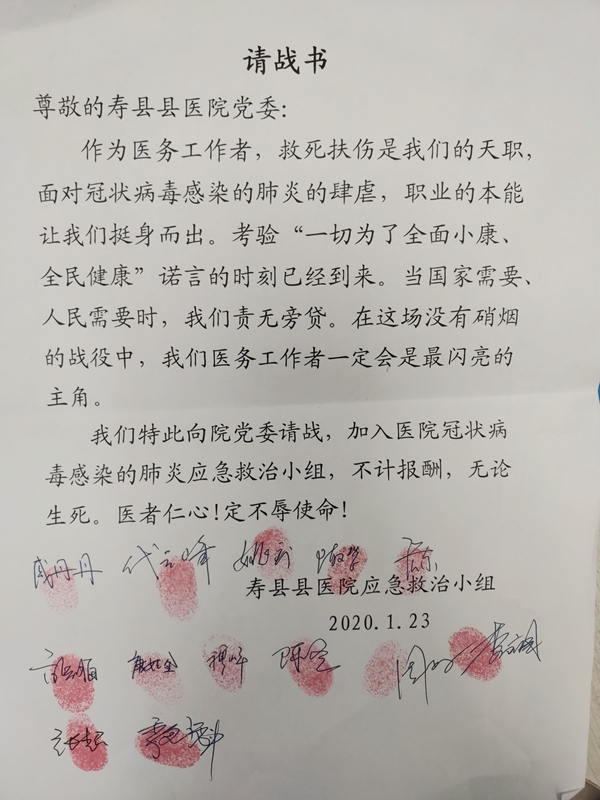 请战书
尊敬的寿县县医院党委：
作为医务工作者，救死扶伤是我们的天职，
面对冠状病毒感染的肺炎的肆虐，职业的本能
让我们挺身而出。考验“一切为了全面小康、
全民健康”诺言的时刻已经到来。当国家需要、
人民需要时，我们责无旁贷。在这场没有硝烟
的战役中，我们医务工作者一定会是最闪亮的
主角。
我们特此向院党委请战，加入医院冠状病
毒感染的肺炎应急救治小组，不计报酬，无论
生死。医者仁心！定不辱使命！
寿县县医院应急救治小组
2020.1.23